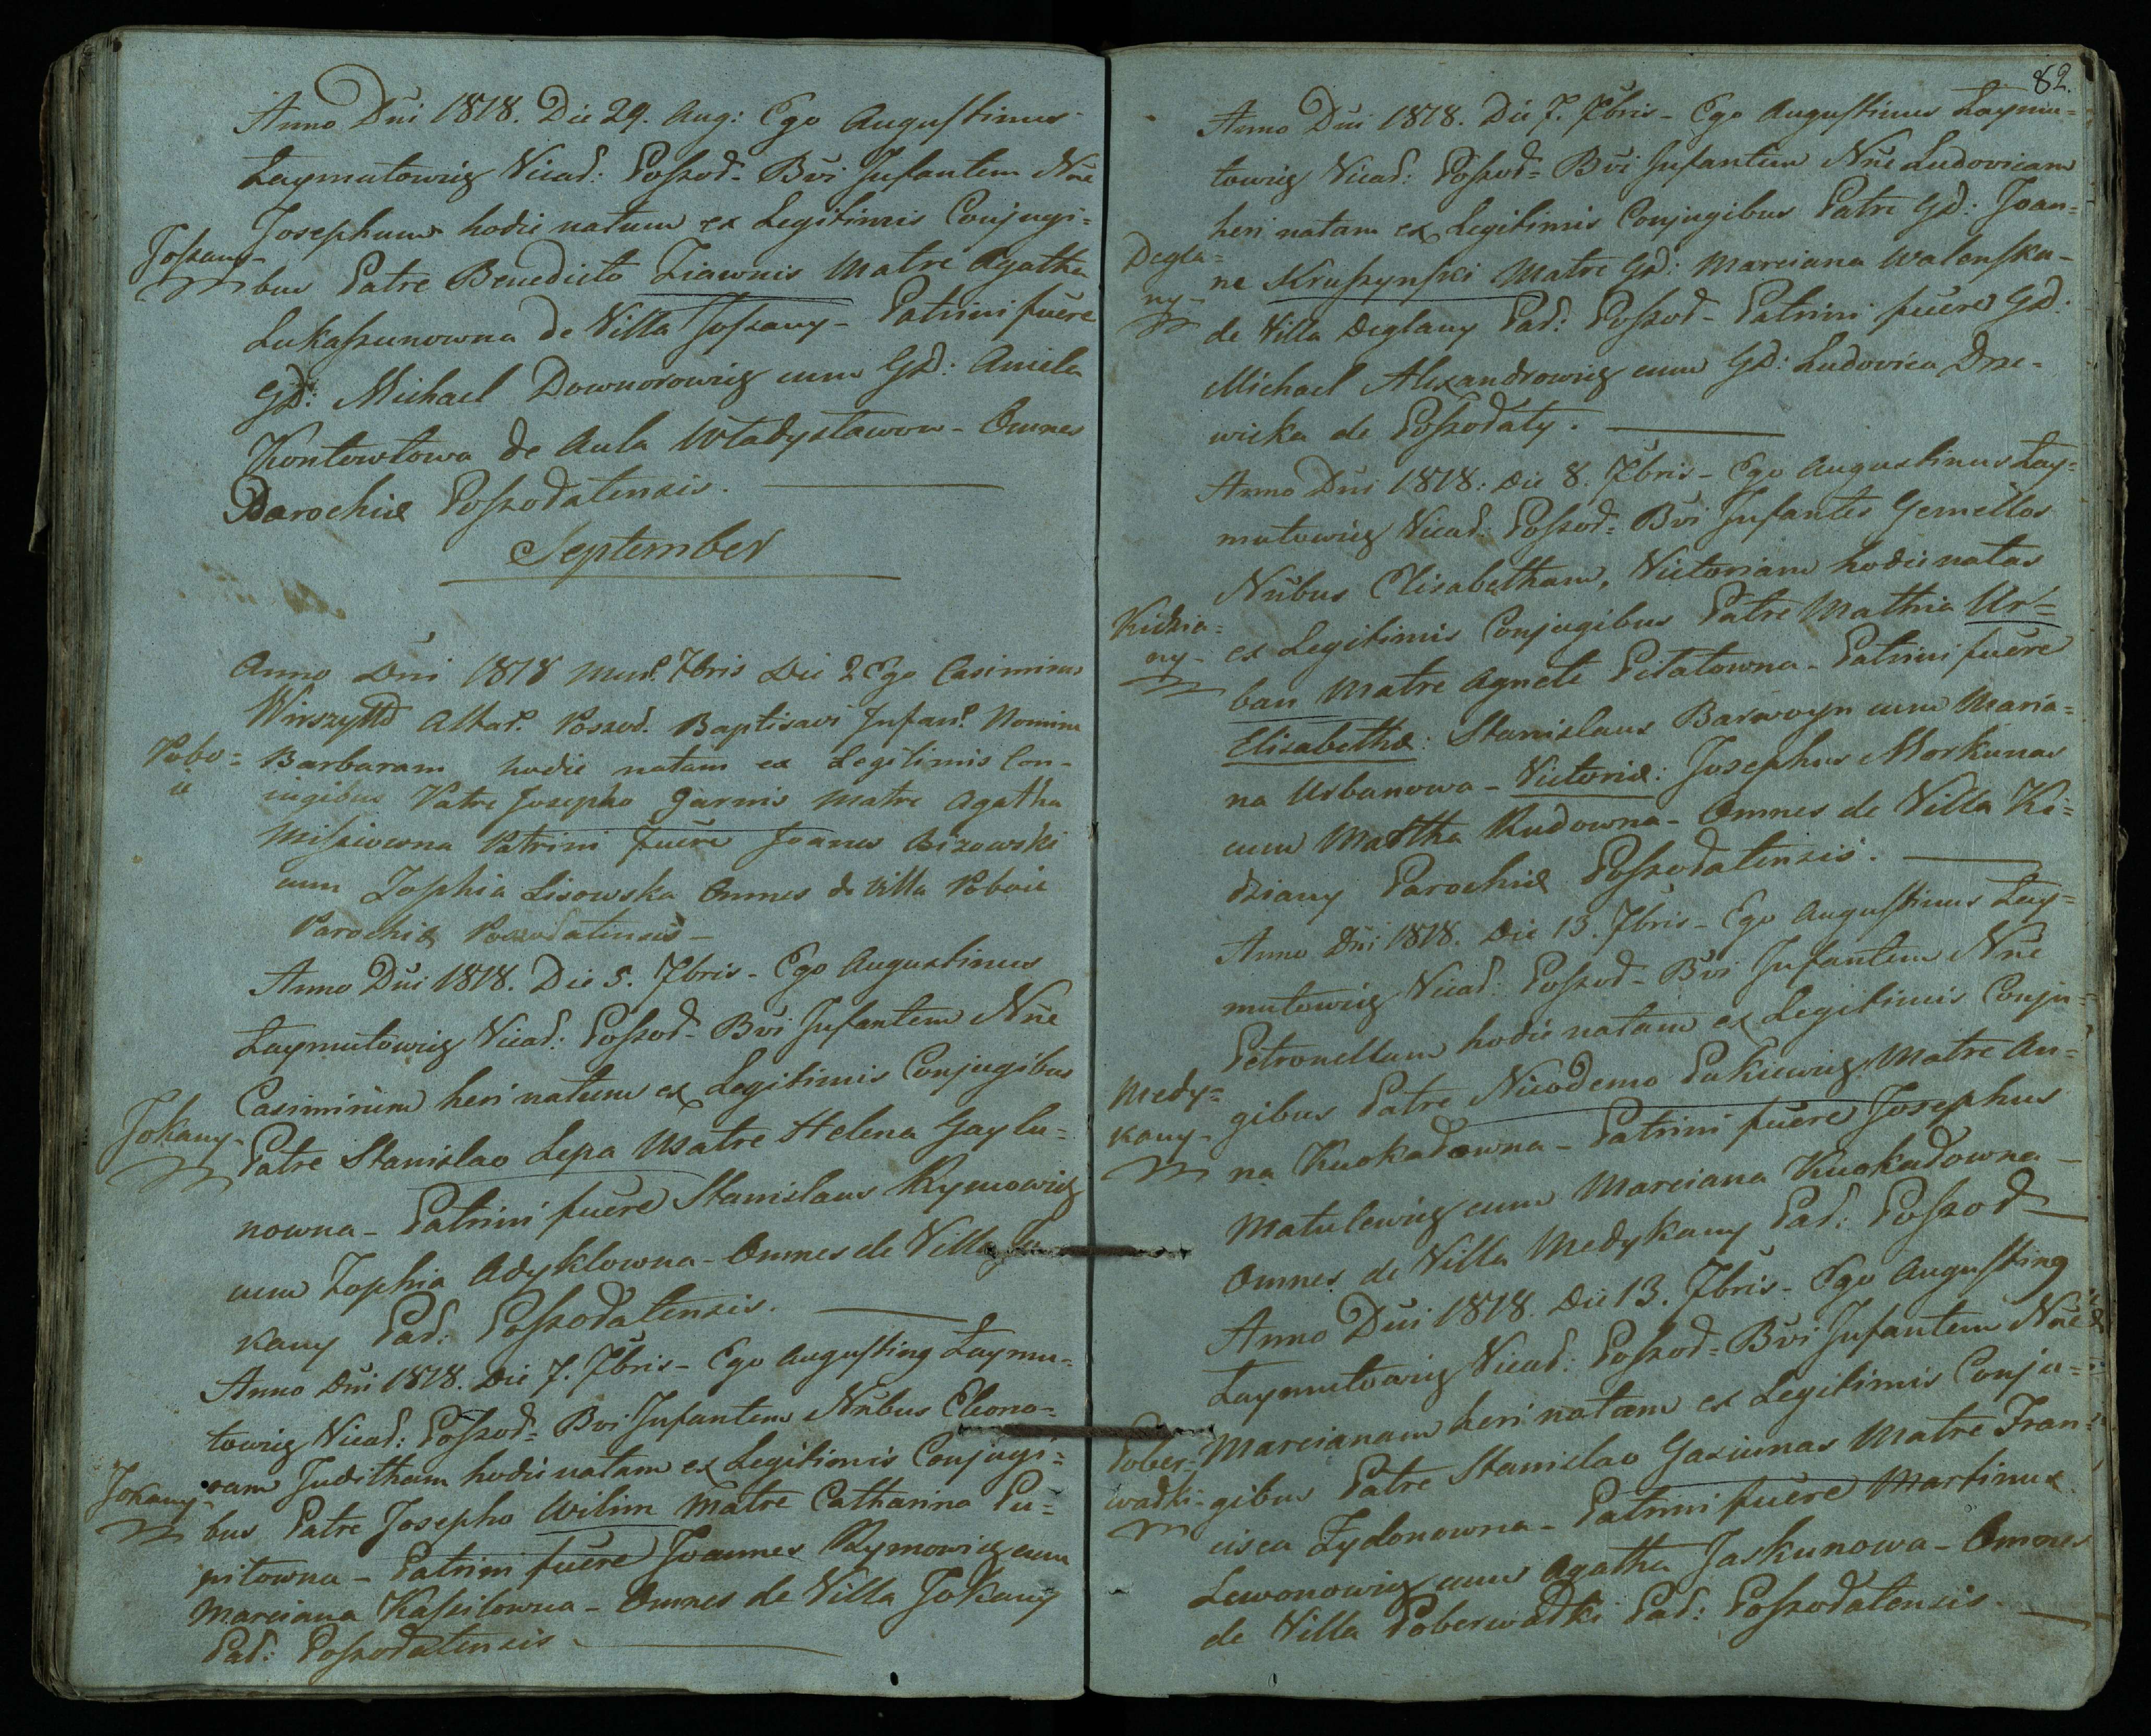 Anno Dni 1818. Die 29. Aug: Ego Augustinus
Zaymutowicz Vicar: Poszod- Bvi Infantem Nne
Josephum hodie natum ex Legitimis Conjugi=
Joszany-
bus Patre Benedicto Ziawnis Matre Agatha
Lukaszunowna de Villa Joszany- Patrini fuere
GD: Michael Downorowicz cum GD: Aniela
Kontowtowa de Aula Władysławow- Omnes
Parochiæ Poszodatensis.
September
Anno Dni 1818 Mens. 7bris Die 2 Ego Casimirus
Wirszyłło Altar. Poszod. Baptisavi Infan. Nomine
Pobo=
ie
Barbaram hodie natam ex Legitimis Con-
iugibus Patre Josepho Jarnis Matre Agatha
Misiewna Patrini fuere Joanes Bizowski
cum Zophia Lisowska Omnes de Villa Poboie
Parochiæ Poszodatensis-
Anno Dni 1818. Die 5. 7bris- Ego Augustinus
Zaymutowicz Vicar: Poszod- Bvi Infantem Nne
Casimirum heri natum ex Legitimis Conjugibus
Jokany-
Patre Stanislao Lepa Matre Helena Gaylu=
nowna- Patrini fuere Stanislaus Rymowicz
cum Zophia Adyklowna- Omnes de Villa Jo
kany Par: Poszodatensis.
Anno Dni 1818. Die 7. 7bris- Ego Augustinq Zaymu=
towicz Vicar: Poszod= Bvi Infantem Nnibus Eleono=
ram Juditham hodie natam ex Legitimis Conjugi=
Jokany-
bus Patre Josepho Wilim Matre Catharina Pu=
pitowna- Patrini fuere Joannes Rymowicz cum
Marciana Kaszitowna- Omnes de Villa Jokany
Par: Poszodatensis.
82.
Anno Dni 1818. Die 7. 7bris- Ego Augustinus Zaymu=
towicz Vicar: Poszod= Bvi Infantem Nne Ludovicam
heri natam ex Legitimis Conjugibus Patre GD: Joan=
Degla=
ny-
ne Kruszynski Matre GD: Marciana Walenska-
de Villa Deglany Par: Poszod- Patrini fuere GD:
Michael Alexandrowicz cum GD: Ludovica Drze-
wicka de Poszodaty.
Anno Dni 1818: Die 8. 7bris- Ego Augustinus Zay=
mutowicz Vicar: Poszod= Bvi Infantes Gemellos
Nnibus Elisabetham, Victoriam hodie natas
Kidzia=
ny-
ex Legitimis Conjugibus Patre Mathia Ur=
ban Matre Agnete Pitatowna- Patrini fuere
Elisabethæ: Stanislaus Barwoyn cum Maria=
na Urbanowa- Victoriæ: Josephus Morkunas
cum Martha Rudowna- Omnes de Villa Ki=
dziany Parochiæ Poszodatensis.
Anno Dni 1818. Die 13. 7bris- Ego Augustinus Zay=
mutowicz Vicar: Poszod- Bvi Infantem Nne
Petronellam hodie natam ex Legitimis Conju=
Medy=
kany-
gibus Patre Nicodemo Pukiewicz Matre An=
na Kuokadowna- Patrini fuere Josephus
Matulewicz cum Marciana Kuokadowna-
Omnes de Villa Medykany Par: Poszod-
Anno Dni 1818. Die 13. 7bris- Ego Augustinq
Zaymutowicz Vicar: Poszod= Bvi Infantem Nne
Marcianam heri natam ex Legitimis Conju=
Pober=
wadki-
gibus Patre Stanislao Gasiunas Matre Fran=
cisca Zydonowna- Patrini fuere Martinus
Lewonowicz cum Agatha Jaskunowa- Omnes
de Villa Poberwadki Par: Poszodatensis.